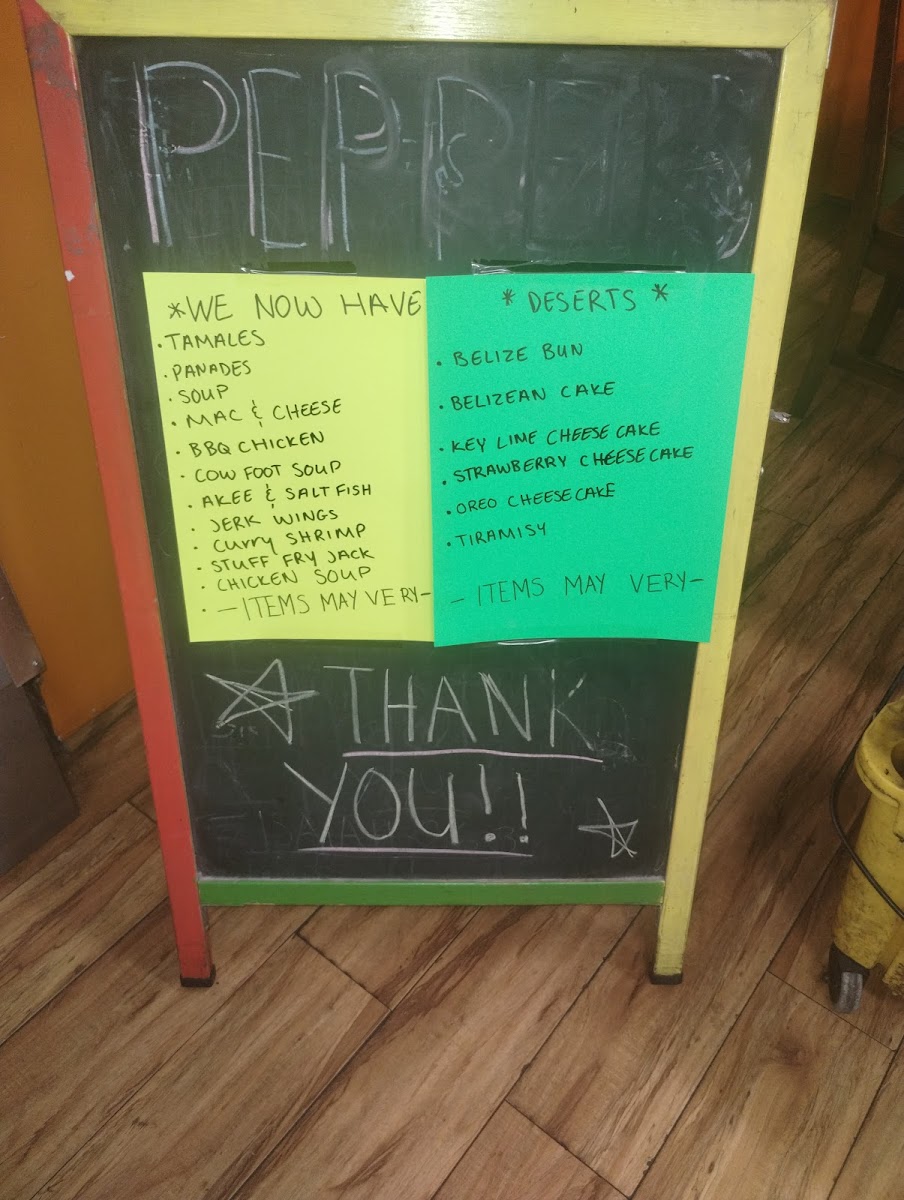 PEPP
*WE NOW HAVE
• TAMALES
• PANADES
• SOUP
• MAC & CHEESE
• BBQ CHICKEN
• COW FOOT SOUP
• AKEE & SALTFISH
• JERK WINGS
• CURRY SHRIMP
• STUFF FRY JACK
• CHICKEN SOUP
• — ITEMS MAY VERY —
* DESERTS *
• BELIZE BUN
• BELIZEAN CAKE
• KEY LIME CHEESE CAKE
• STRAWBERRY CHEESE CAKE
• OREO CHEESE CAKE
• TIRAMISY
— ITEMS MAY VERY —
THANK
YOU!!